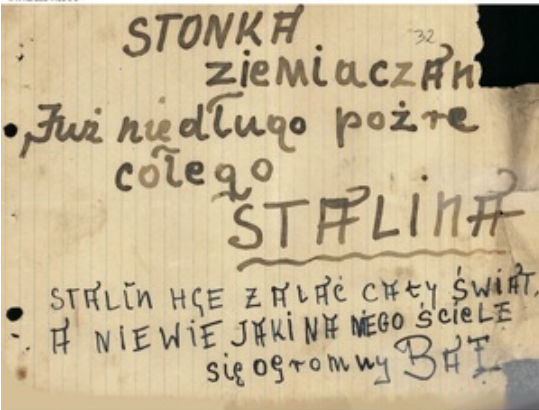 STONKA 32
ziemiaczan
Już niedługo pożre
cołego
STALINA
STALIN HCE ZALAĆ CAŁY ŚWIAT.
A NIEWIE JAKI NA NIEGO ŚCIELE
się ogromny BAT